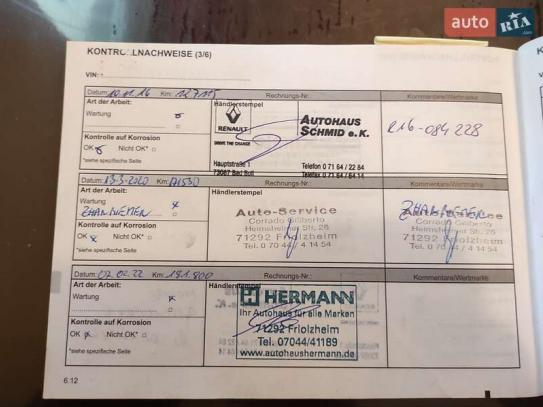 auto RIA.com
KONTROLLNACHWEISE (3/6)
VIN:
Datum: 10.11.16 Km: 127115 Rechnungs-Nr.: Kommentare/Wertmarke
Art der Arbeit: Händlerstempel
Wartung
RENAULT AUTOHAUS
DRIVE THE CHANGE SCHMID e.K. R16-084228
Kontrolle auf Korrosion
OK Nicht OK*
*siehe spezifische Seite
Hauptstraße 1 Telefon 0 71 64 / 22 84
73087 Bad Boll Telefax 0 71 64 / 64 14
Datum: 13.3-2020 Km: Rechnungs-Nr.: Kommentare/Wertmarke
Art der Arbeit: Händlerstempel
Wartung
ZHANRIEMEN
Auto-Service
Corrado Giliberto
Heimsheimer Str. 26
71292 Friolzheim
Tel. 0 70 44 / 4 14 54
ZHANRIEMEN
Auto-Service
Corrado Giliberto
Heimsheimer Str. 26
71292 Friolzheim
Tel. 0 70 44 / 4 14 54
Kontrolle auf Korrosion
OK Nicht OK*
*siehe spezifische Seite
Datum: 02.02.22 Km: 191.800 Rechnungs-Nr.: Kommentare/Wertmarke
Art der Arbeit: Händlerstempel
Wartung
HERMANN
Ihr Autohaus für alle Marken
71292 Friolzheim
Tel. 07044/41189
www.autohaushermann.de
Kontrolle auf Korrosion
OK Nicht OK*
*siehe spezifische Seite
6.12